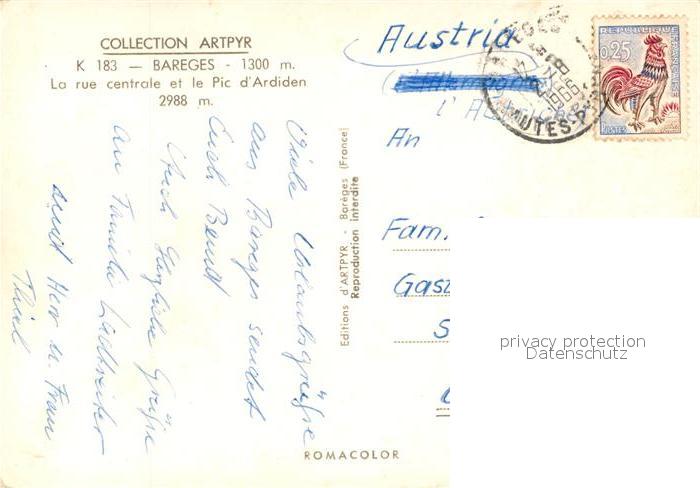 COLLECTION ARTPYR
K 183 — BAREGES - 1300 m.
La rue centrale et le Pic d'Ardiden
2988 m.
Viele Urlaubsgrüße
aus Bareges sendet
Euch Bernd
Auch Herzliche Grüße
an Familie
sendet Herr u. Frau
Thiel
Editions d'ARTPYR - Barèges (France)
Reproduction interdite
ROMACOLOR
Austria
An
Fam.
REPUBLIQUE FRANÇAISE
0,25
POSTES
1965
HAUTES-P
privacy protection
Datenschutz